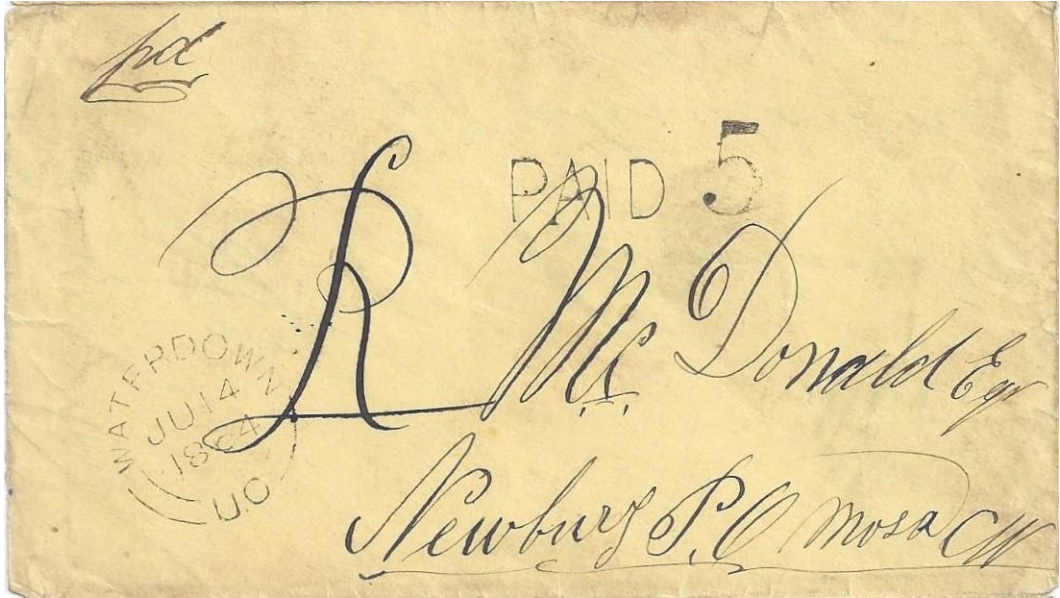 pd
PAID 5
R McDonald Esqr
WATERDOWN
JU 14
1864
U.C
Newbury P.O Mosa CW